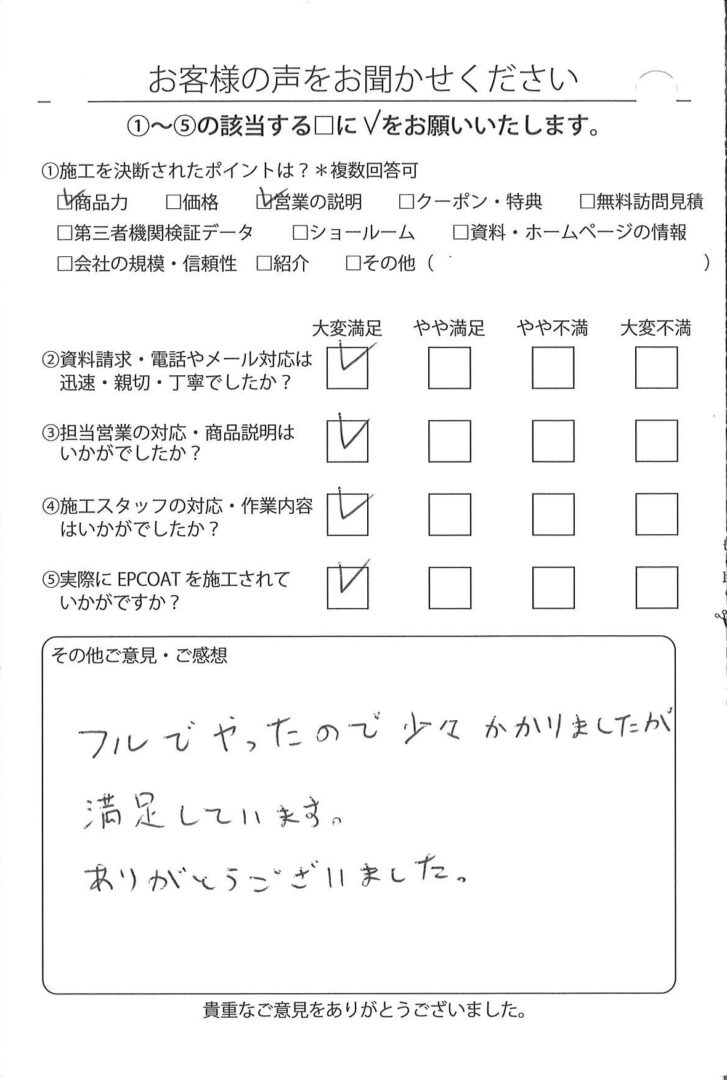 お客様の声をお聞かせください
①～⑤の該当する□に√をお願いいたします。
①施工を決断されたポイントは？＊複数回答可
☑商品力 □価格 ☑営業の説明 □クーポン・特典 □無料訪問見積
□第三者機関検証データ □ショールーム □資料・ホームページの情報
□会社の規模・信頼性 □紹介 □その他（ ）
大変満足 やや満足 やや不満 大変不満
②資料請求・電話やメール対応は ☑ □ □ □
迅速・親切・丁寧でしたか？
③担当営業の対応・商品説明は ☑ □ □ □
いかがでしたか？
④施工スタッフの対応・作業内容 ☑ □ □ □
はいかがでしたか？
⑤実際に EPCOAT を施工されて ☑ □ □ □
いかがですか？
その他ご意見・ご感想
フルでやったので少々かかりましたが
満足しています。
ありがとうございました。
貴重なご意見をありがとうございました。